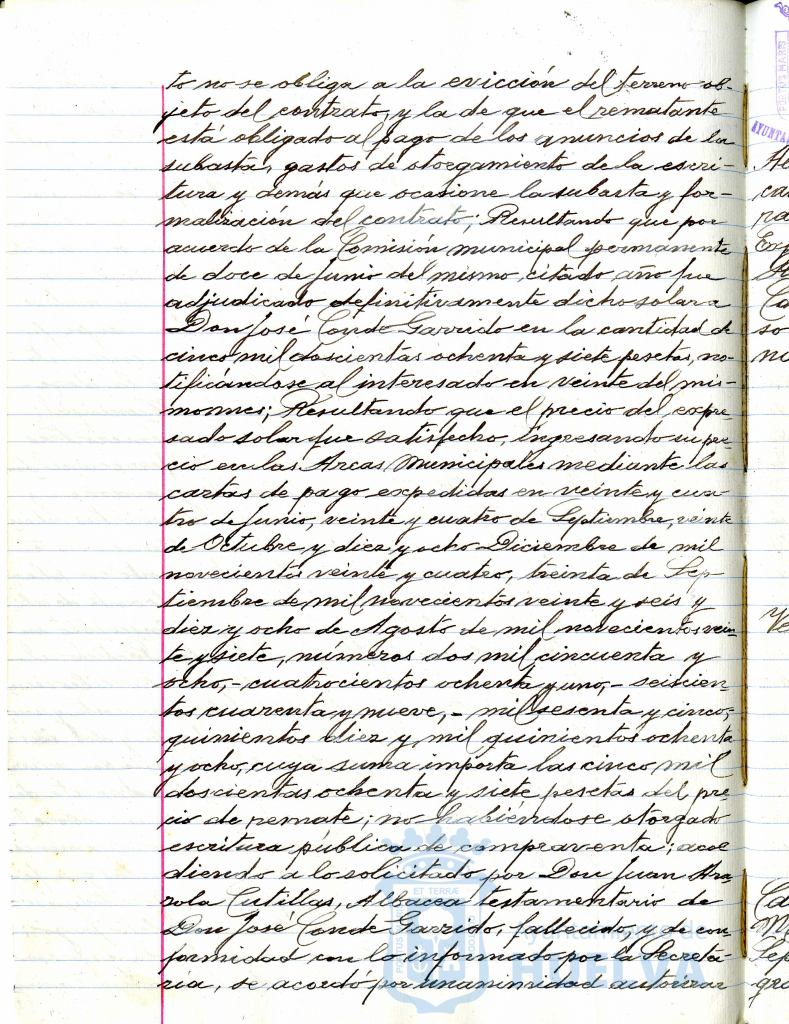 to no se obliga a la evicción del terreno ob-
jeto del contrato, y la de que el rematante
está obligado al pago de los anuncios de la
subasta, gastos de otorgamiento de la escri-
tura y demás que ocasione la subasta y for-
malización del contrato; Resultando que por
acuerdo de la Comisión municipal permanente
de doce de Junio del mismo, citado, año fue
adjudicado definitivamente dicho solar a
Don José Conde Garrido en la cantidad de
cinco mil doscientas ochenta y siete pesetas, no-
tificándose al interesado en veinte del mis-
mo mes; Resultando que el precio del expre-
sado solar fue satisfecho, ingresando su pre-
cio en las Arcas Municipales mediante las
cartas de pago expedidas en veinte y cua-
tro de Junio, veinte y cuatro de Septiembre, veinte
de Octubre y diez y ocho Diciembre de mil
novecientos veinte y cuatro, treinta de Sep-
tiembre de mil novecientos veinte y seis y
diez y ocho de Agosto de mil novecientos vein-
te y siete, números dos mil cincuenta y
ocho,- cuatrocientos ochenta y uno,- seiscien-
tos cuarenta y nueve,- mil sesenta y cinco,-
quinientos diez y mil quinientos ochenta
y ocho, cuya suma importa las cinco mil
doscientas ochenta y siete pesetas del pre-
cio de remate; no habiéndose otorgado
escritura pública de compraventa; acce
diendo a lo solicitado por Don Juan
Cutillas, Albacea testamentario de
Don José Conde Garrido, fallecido, y de con
formidad con lo informado por la Secreta-
ría, se acordó por unanimidad autorizar
Ayuntamiento de
HUELVA